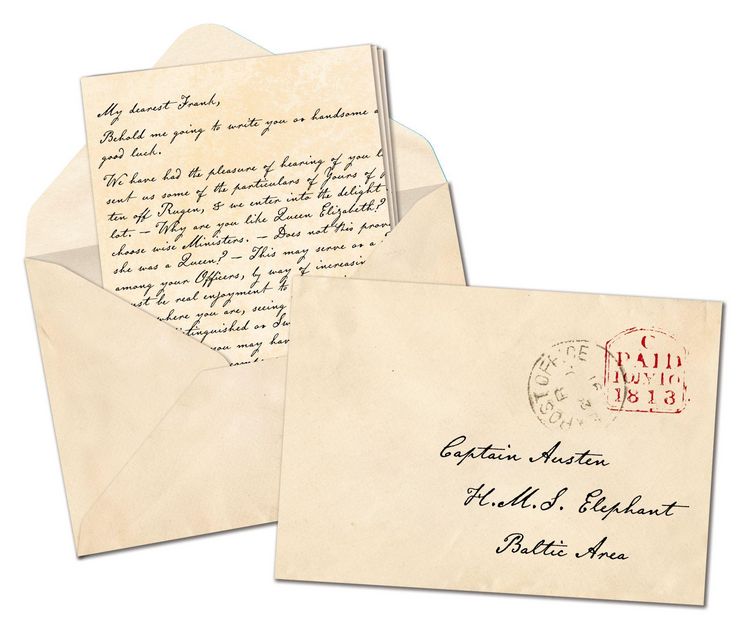 My dearest Frank,
Behold me going to write you as handsome a
good luck.
We have had the pleasure of hearing of you l
sent us some of the particulars of Yours of
ten off Rugen, & we enter into the delight
lot. — Why are you like Queen Elizabeth?
choose wise Ministers. — Does not this prov
she was a Queen? — This may serve as a
among your Officers, by way of increasin
ust be real enjoyment to
where you are, seeing
tinguished as Sw
you may have
POST OFFICE
C
PAID
1813
Captain Austen
H.M.S. Elephant
Baltic Area